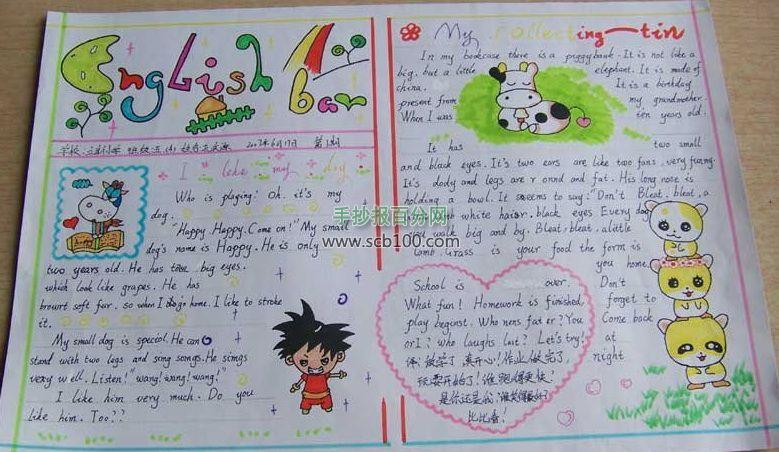 English bar
2007年6月17日 第1期
I like my dog
Who is playing? Oh. it's my
dog.
"Happy Happy. Come on!" My small
dog's name is Happy. He is only
two years old. He has two big eyes.
which look like grapes. He has
browrt soft fur. so when I go home. I like to stroke
it.
My small dog is special. He can
stand with two legs and sing songs. He sings
very well. Listen! "wang! wang! wang!"
I like him very much. Do you
like him. Too??
My collecting-tin
In my bookcase there is a piggybank. It is not like a
big. but a little elephant. It is made of
china. It is a birthday
present from my grandmother.
When I was ten years old.
It has two small
and black eyes. It's two ears are like two fans. very funny.
It's dody and legs are round and fat. His long nose is
holding a bowl. It seems to say: "Don't Bleat. bleat. a
lamb white hair. black eyes Every day
walk big and by. Bleat. bleat. alittle
lamb. Grass is your food the form is
you home.
Don't
forget to
Come back
at
night
School is over.
What fun! Homework is finished,
play beginst. Who runs faster? You
or I? who laughs last? Let's try!
译:放学了 真开心!作业做完了.
玩耍开始了!谁跑得更快?
是你还是我.谁笑得最好?
比比看!
手抄报百分网
www.scb100.com